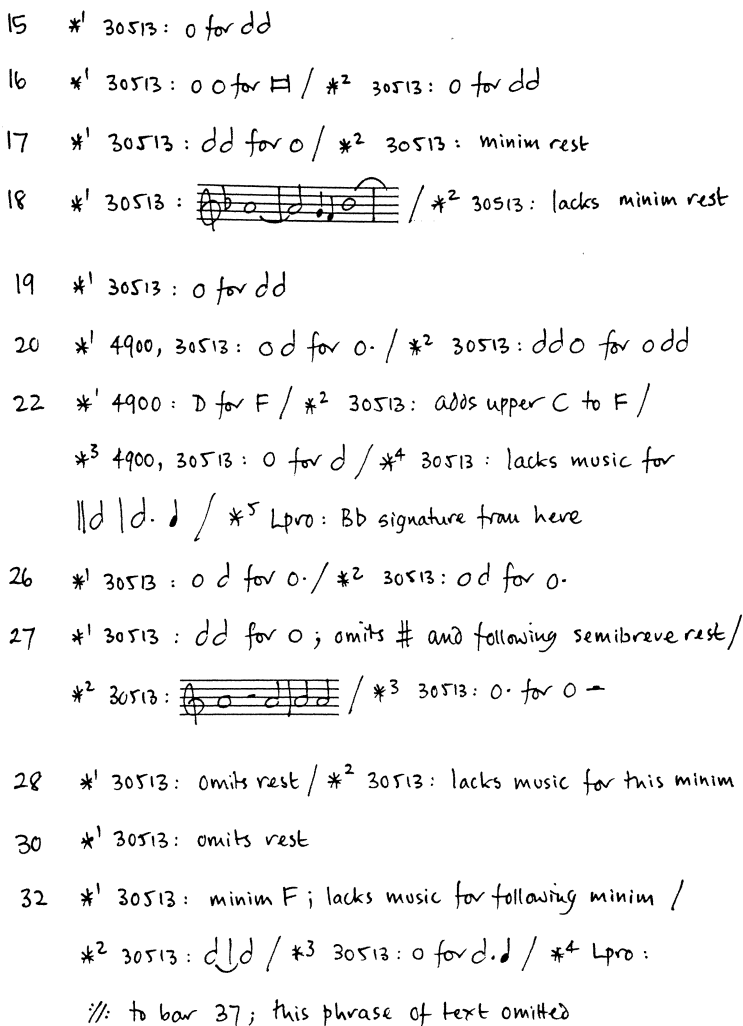 15 *¹ 30513: o for dd
16 *¹ 30513: o o for 𝆸 / *² 30513: o for dd
17 *¹ 30513: dd for o / *² 30513: minim rest
18 *¹ 30513: / *² 30513: lacks minim rest
19 *¹ 30513: o for dd
20 *¹ 4900, 30513: o d for o· / *² 30513: ddo for odd
22 *¹ 4900: D for F / *² 30513: adds upper C to F /
*³ 4900, 30513: o for d / *⁴ 30513: lacks music for
||d |d. ♩ / *⁵ Lpro: Bb signature from here
26 *¹ 30513: o d for o· / *² 30513: o d for o·
27 *¹ 30513: dd for o; omits # and following semibreve rest/
*² 30513: / *³ 30513: o· for o -
28 *¹ 30513: omits rest / *² 30513: lacks music for this minim
30 *¹ 30513: omits rest
32 *¹ 30513: minim F; lacks music for following minim /
*² 30513: d|d / *³ 30513: o for d.♩ / *⁴ Lpro:
:||: to bar 37; this phrase of text omitted